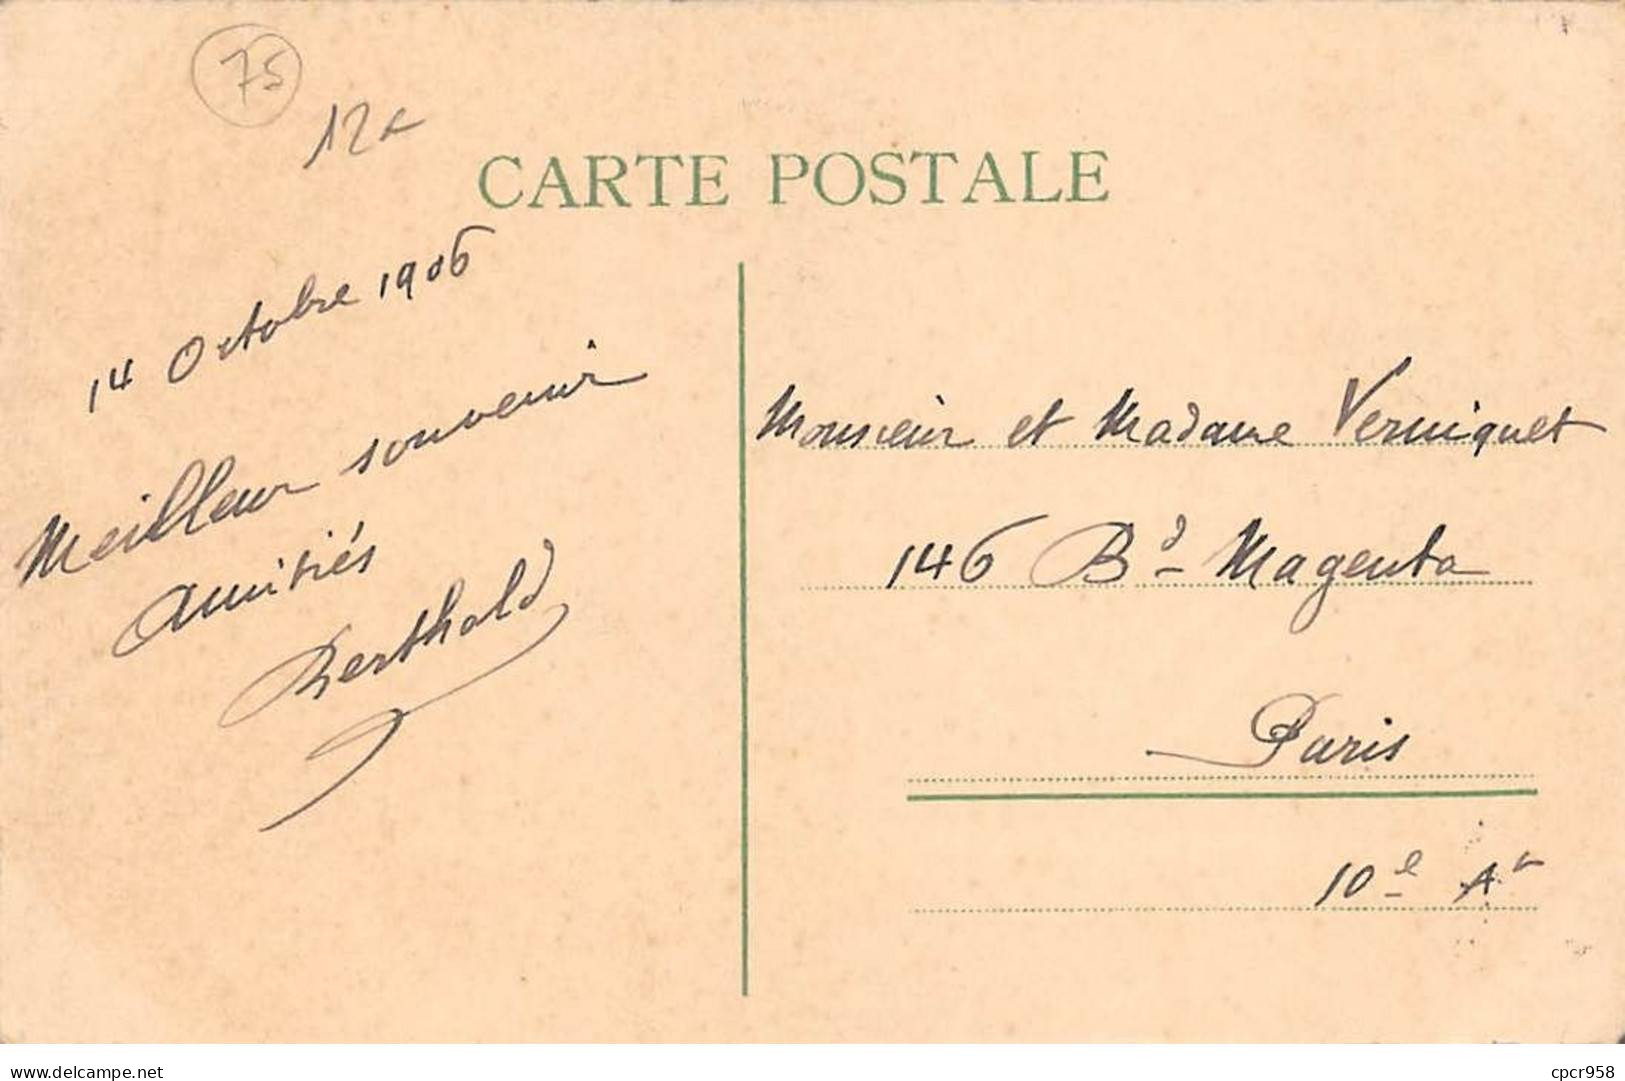 75
12a
CARTE POSTALE
14 Octobre 1906
Meilleur souvenir
Amitiés
Berthold
Monsieur et Madame Vermiquet
146 Bd Magenta
Paris
10e Ar
delcampe.net
cpcr958